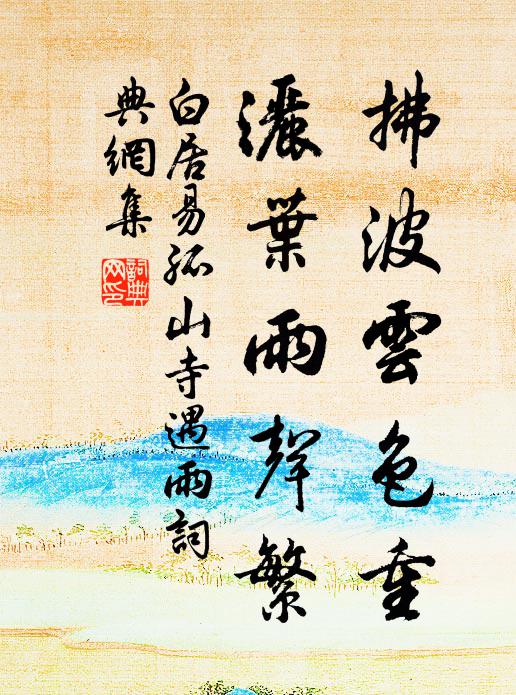 拂波雲色重
灑葉雨聲繁
白居易孤山寺遇雨詞
典網集
詞典网印